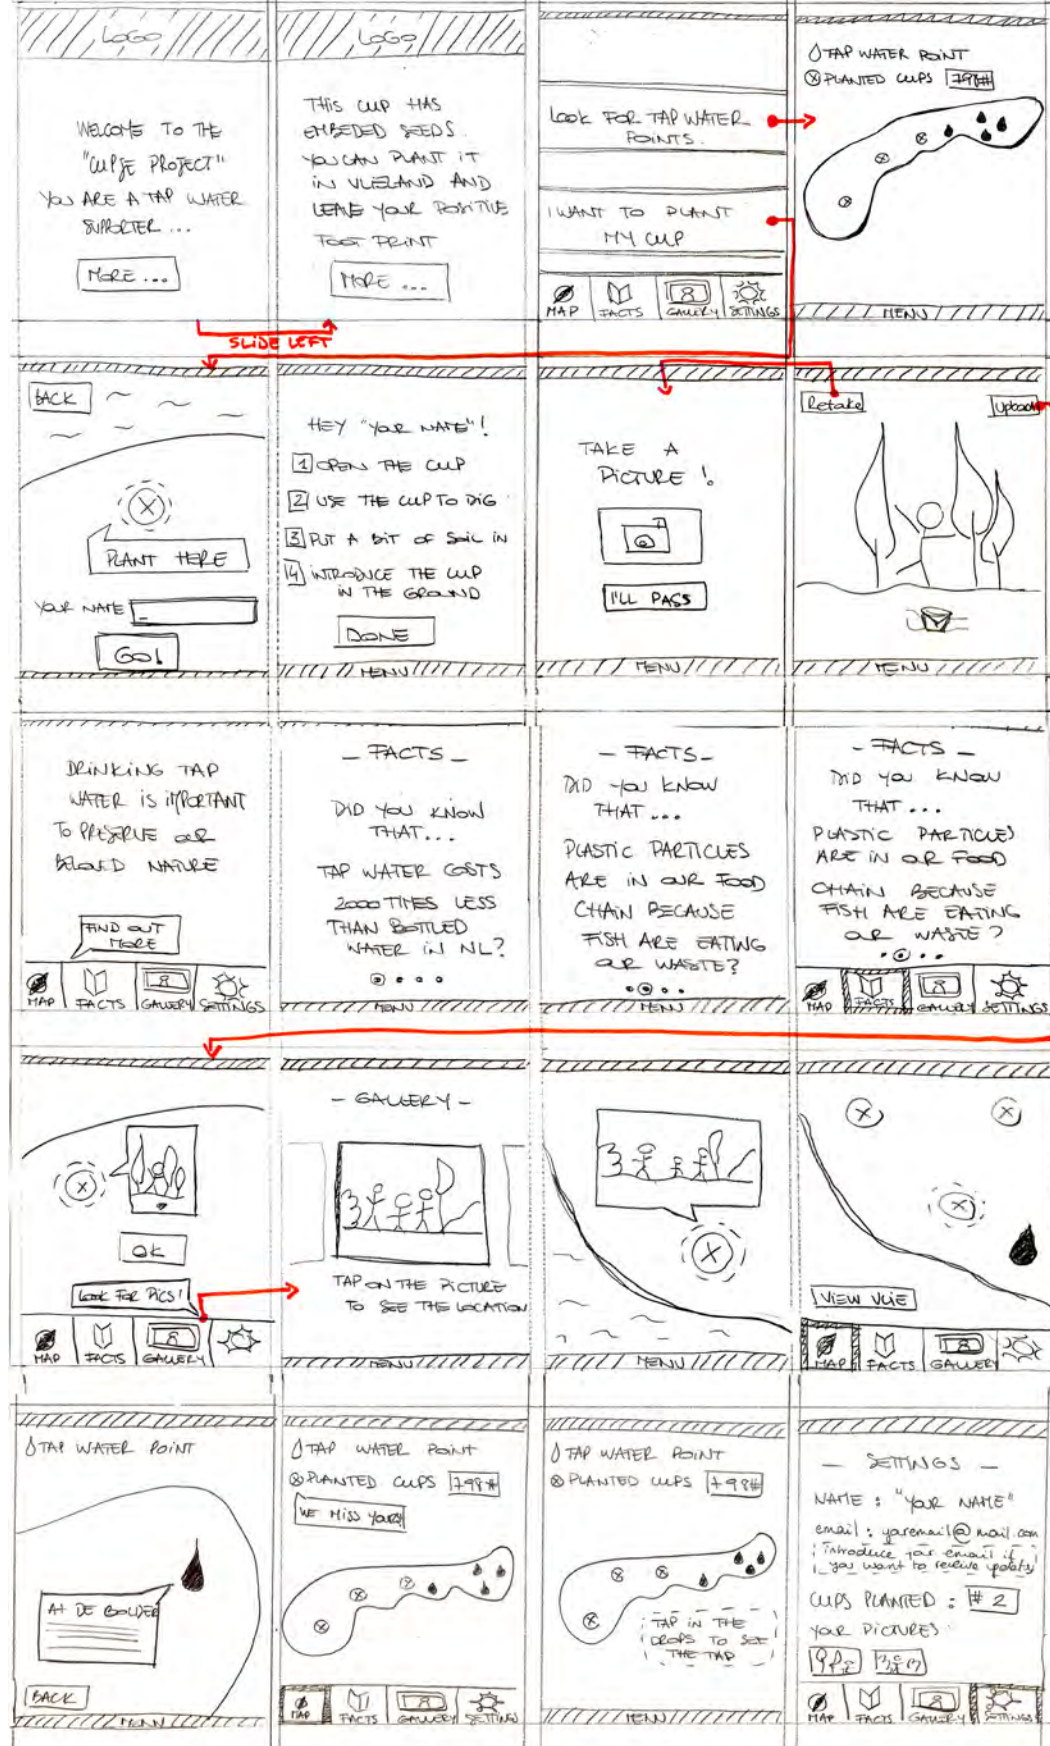 LOGO
WELCOME TO THE
"CUPSE PROJECT"
YOU ARE A TAP WATER
SUPPORTER ...
MORE ...
LOGO
THIS CUP HAS
EMBEDED SEEDS.
YOU CAN PLANT IT
IN VLIELAND AND
LEAVE YOUR POSITIVE
FOOT PRINT
MORE ...
SLIDE LEFT
LOOK FOR TAP WATER
POINTS.
I WANT TO PLANT
MY CUP
MAP FACTS GALLERY SETTINGS
TAP WATER POINT
PLANTED CUPS 798#
MENU
BACK
PLANT HERE
YOUR NAME
GO!
HEY "YOUR NAME"!
1 OPEN THE CUP
2 USE THE CUP TO DIG
3 PUT A BIT OF SOIL IN
4 INTRODUCE THE CUP
IN THE GROUND
DONE
MENU
TAKE A
PICTURE!
I'LL PASS
MENU
Retake
Upload
MENU
DRINKING TAP
WATER IS IMPORTANT
TO PRESERVE OUR
BELOVED NATURE
FIND OUT
MORE
MAP FACTS GALLERY SETTINGS
- FACTS -
DID YOU KNOW
THAT...
TAP WATER COSTS
2000 TIMES LESS
THAN BOTTLED
WATER IN NL?
MENU
- FACTS -
DID YOU KNOW
THAT ...
PLASTIC PARTICLES
ARE IN OUR FOOD
CHAIN BECAUSE
FISH ARE EATING
OUR WASTE?
MENU
- FACTS -
DID YOU KNOW
THAT ...
PLASTIC PARTICLES
ARE IN OUR FOOD
CHAIN BECAUSE
FISH ARE EATING
OUR WASTE?
MAP FACTS GALLERY SETTINGS
OK
LOOK FOR PICS!
MAP FACTS GALLERY
- GALLERY -
TAP ON THE PICTURE
TO SEE THE LOCATION
MENU
MENU
VIEW VLIE
MAP FACTS GALLERY
TAP WATER POINT
AT DE BOLDER
BACK
MENU
TAP WATER POINT
PLANTED CUPS 798#
WE MISS YOURS!
MAP FACTS GALLERY SETTING
TAP WATER POINT
PLANTED CUPS 798#
TAP IN THE
DROPS TO SEE
THE TAP
MENU
- SETTINGS -
NAME : "YOUR NAME"
email : youremail@mail.com
introduce your email if
you want to receive updates
CUPS PLANTED : # 2
YOUR PICTURES
MAP FACTS GALLERY SETTINGS